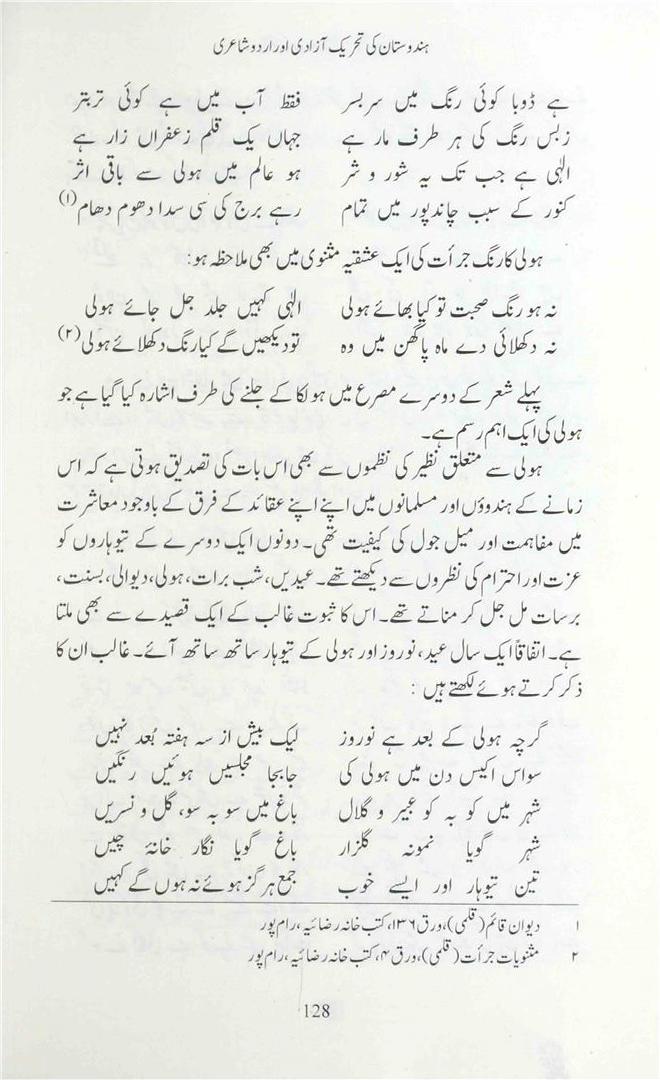 ہندوستان کی تحریک آزادی اور اردو شاعری
ہے ڈوبا کوئی رنگ میں سربسر فقط آب میں ہے کوئی تربتر
زبس رنگ کی ہر طرف مار ہے جہاں یک قلم زعفراں زار ہے
الٰہی ہے جب تک یہ شور و شر ہو عالم میں ہولی سے باقی اثر
کنور کے سبب چاندپور میں تمام رہے برج کی سی سدا دھوم دھام (۱)
ہولی کا رنگ جرأت کی ایک عشقیہ مثنوی میں بھی ملاحظہ ہو:
نہ ہو رنگ صحبت تو کیا بھائے ہولی الٰہی کہیں جلد جل جائے ہولی
نہ دکھلائی دے ماہ پاگھن میں وہ تو دیکھیں گے کیا رنگ دکھلائے ہولی (۲)
پہلے شعر کے دوسرے مصرع میں ہولکا کے جلنے کی طرف اشارہ کیا گیا ہے جو
ہولی کی ایک اہم رسم ہے۔
ہولی سے متعلق نظیر کی نظموں سے بھی اس بات کی تصدیق ہوتی ہے کہ اس
زمانے کے ہندوؤں اور مسلمانوں میں اپنے اپنے عقائد کے فرق کے باوجود معاشرت
میں مفاہمت اور میل جول کی کیفیت تھی۔ دونوں ایک دوسرے کے تیوہاروں کو
عزت اور احترام کی نظروں سے دیکھتے تھے۔ عیدیں، شب برات، ہولی، دیوالی، بسنت،
برسات مل جل کر مناتے تھے۔ اس کا ثبوت غالب کے ایک قصیدے سے بھی ملتا
ہے۔ اتفاقاً ایک سال عید، نوروز اور ہولی کے تیوہار ساتھ ساتھ آئے۔ غالب ان کا
ذکر کرتے ہوئے لکھتے ہیں :
گرچہ ہولی کے بعد ہے نوروز لیک بیش از سہ ہفتہ بُعد نہیں
سو اس اکیس دن میں ہولی کی جابجا مجلسیں ہوئیں رنگیں
شہر میں کو بہ کو عبیر و گلال باغ میں سو بہ سو، گل و نسریں
شہر گویا نمونہ گلزار باغ گویا نگار خانۂ چیں
تین تیوہار اور ایسے خوب جمع ہرگز ہوئے نہ ہوں گے کہیں
۱ دیوان قائم (قلمی)، ورق ۱۳۶، کتب خانہ رضائیہ، رام پور
۲ مثنویات جرأت (قلمی)، ورق ۴، کتب خانہ رضائیہ، رام پور
128